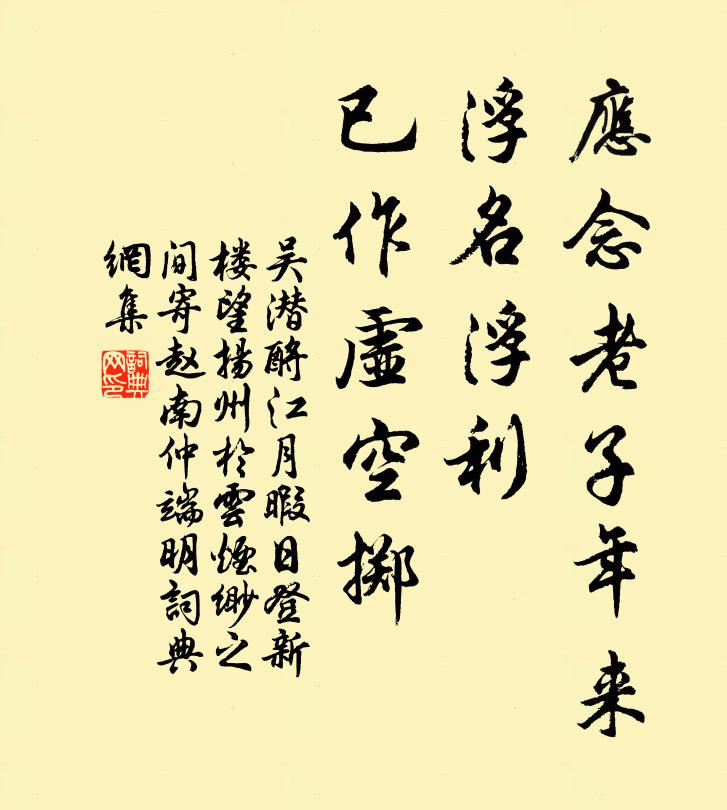 應念老子年来
浮名浮利
已作虛空掷
吴潜酹江月暇日登新
楼望揚州於雲煙缈之
间寄赵南仲端明詞典
網集
詞典
网印